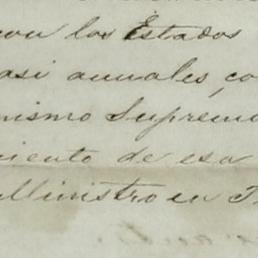 con los Estados
asi anuales, co
mismo Supremo
iento de esa
Ministro en